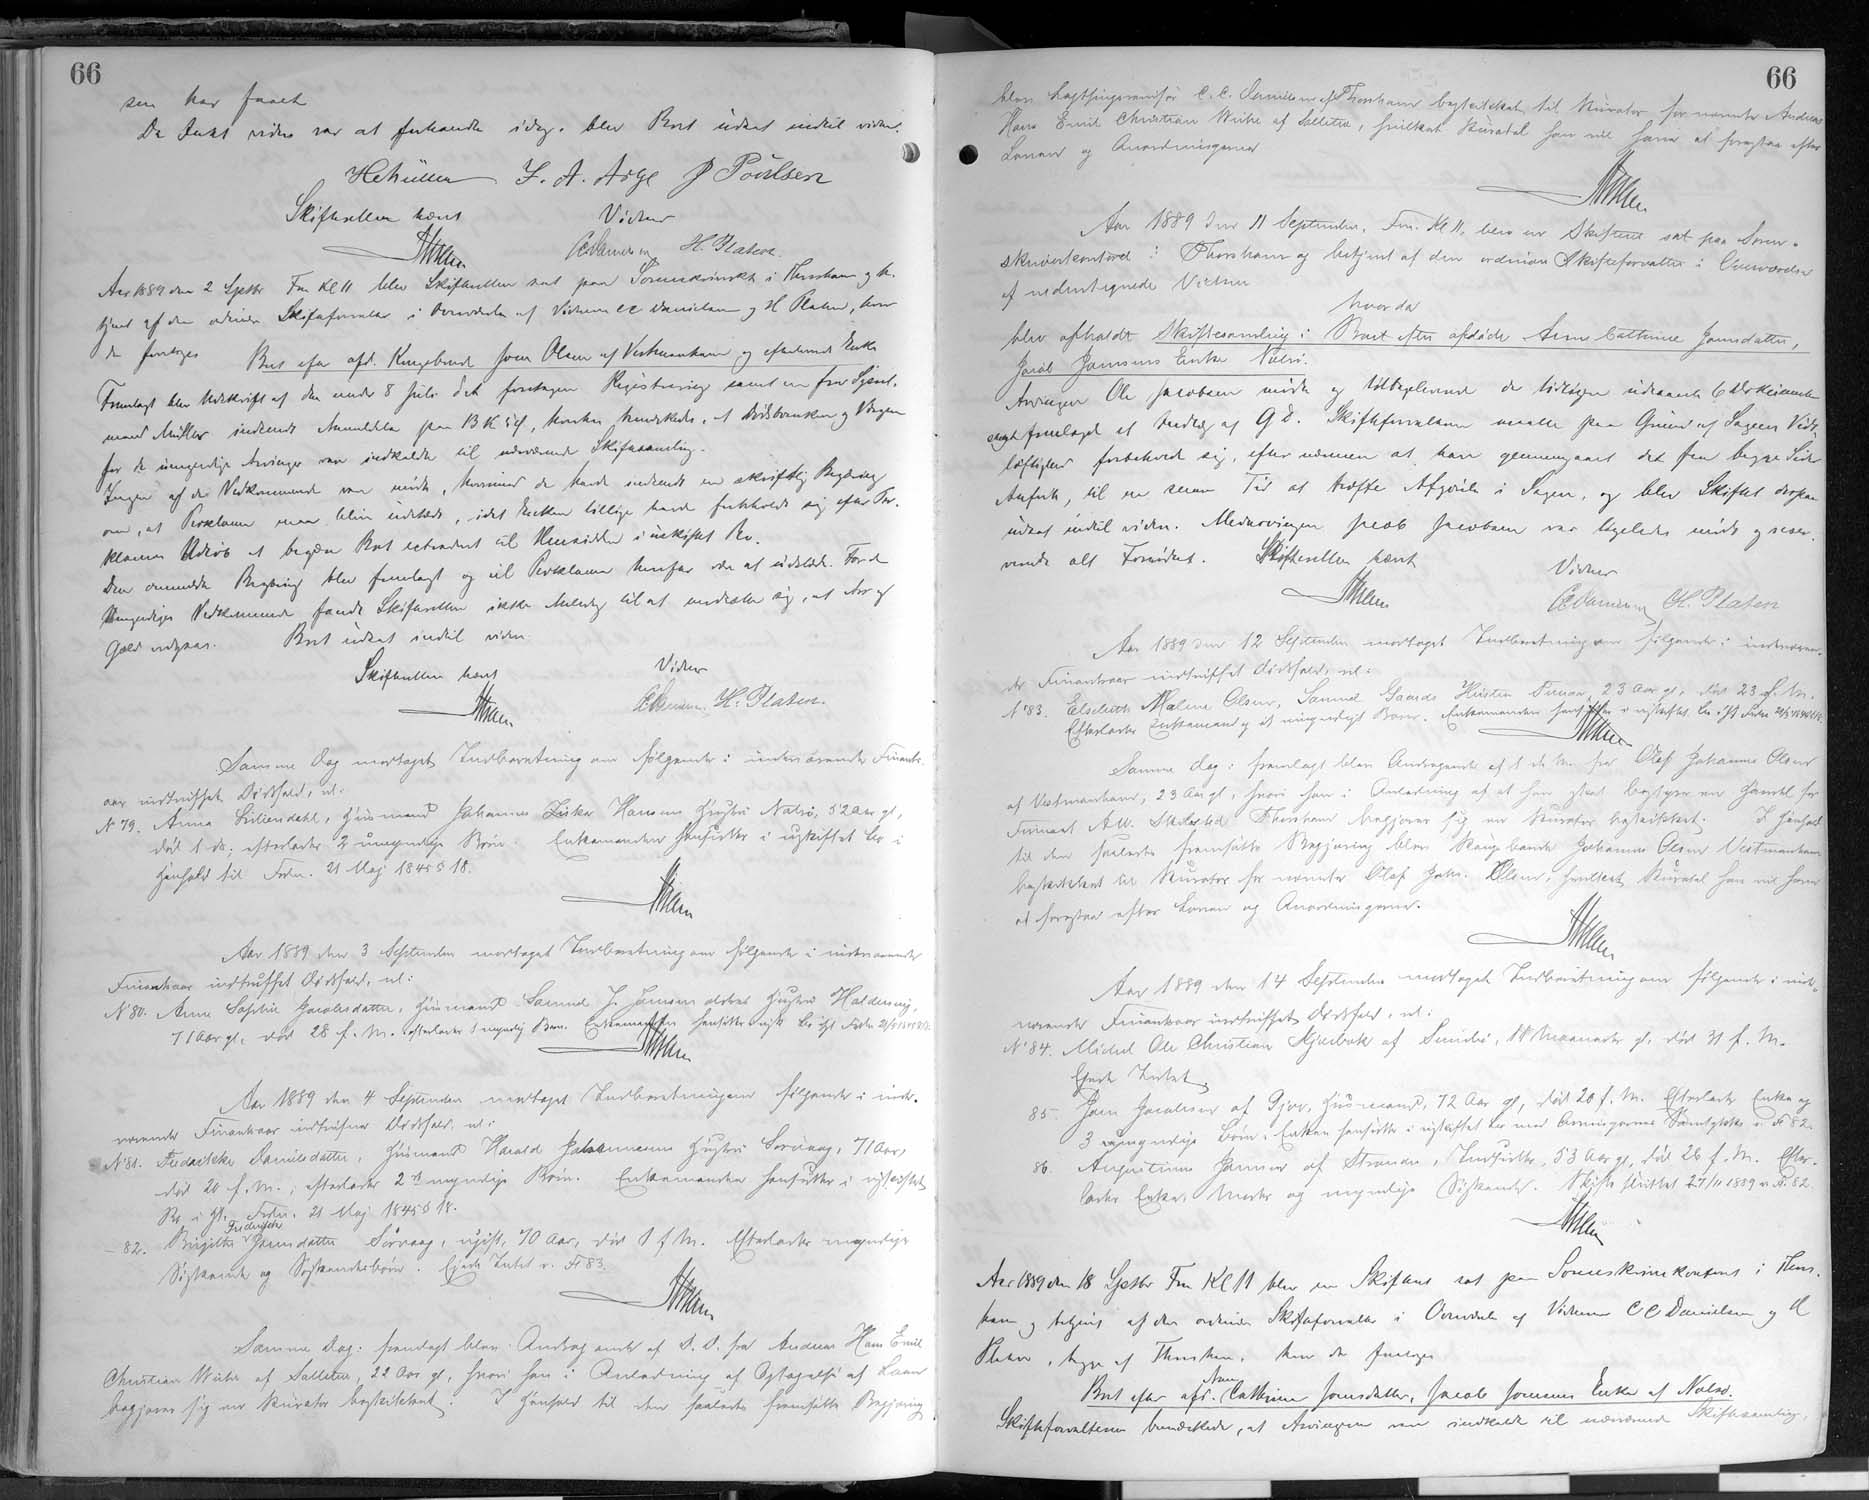 66
som har faaet
Da Intet videre var at forhandle idag, blev Boet udsat indtil videre.
HCMüller J. A. Arge P Poulsen
Skifteretten hævet Vidner
CCDanielsen H. Platen.
Aar 1889 den 2 Septbr Fm Kl 11 blev Skifteretten sat paa Sorenskriverkt. i Thorshavn og be-
tjent af den ordinære Skifteforvalter i Overværelse af Vidnerne CC Danielsen og H Platen, hvor
da foretoges Boet efter afd. Kongsbonde Joen Olsen af Vestmanhavn og efterlevende Enke
Fremlagt blev Udskrift af den under 8 Juli d.A. foretagne Registrering samt en fra Syssel-
mand Müller indsendt Anmeldelse paa
for de umyndige Arvinger var indkaldte til nærværende Skiftesamling.
Ingen af de Vedkommende var mødt, hvorimod de havde indsendt en skriftlig Begjæring
om, at Proklama maa blive udstedt, idet Enken tillige havde forbeholdt sig efter Pro-
klamas Udløb at begjære Boet extraderet til Hensidden i uskiftet Bo.
Den anmeldte Begjæring blev fremlagt og vil Proklama herefter være at udstede. For de
Umyndiges Vedkommende fandt Skifteretten ikke Anledning til at modsætte sig, at Arv og
Gæld vedgaas. Boet udsat indtil videre.
Skifteretten hævet Vidner
CCDanielsen. H. Platen.
Samme Dag modtaget Indberetning om følgende i indeværende Finants-
aar indtruffet Dødsfald, nl:
No 79. Anna Liliendahl, Husmand Johannes Hansens Hustru Nolsö, 52 Aar gl,
død 1 ds; efterlader 2 umyndige Børn. Enkemanden hensidder i uskiftet Bo i
Henhold til Frdn. 21 Maj 1845 § 18.
Aar 1889 den 3 September modtaget Indberetning om følgende i indeværende
Finantsaar indtruffet Dødsfald, nl:
No 80. Anne Sophie Jacobsdatter, Husmand Samuel J. Joensen ældres Hustru Haldersvig,
71 Aar gl, død 28 f. M. efterlader 1 myndig Barn. Enkemanden hensidder i uskft Bo
Aar 1889 den 4 September modtaget Indberetning om følgende i inde-
værende Finantsaar indtrufne Dødsfald, nl:
No 81. Fredrikke Danielsdatter, Husmand Harald Johannesens Hustru Sørvaag, 71 Aar,
død 20 f. M.; efterlader 2 myndige Børn. Enkemanden hensidder i uskiftet
Bo i Hh. Frdn. 21 Maj 1845 § 18.
- 82. Birgitte Fredrikke Joensdatter Sørvaag, ugift, 70 Aar, død 1 f M. Efterlader myndige
Søskende og Søskendebørn. Ejede Intet v. Fl 83.
Samme Dag: fremlagt blev Andragende af D. D. fra Andreas Hans Emil
Christian Weihe af Selletræ, 22 Aar gl, hvori han i Anledning af Optagelse af Laan
begjærer sig en Kurator beskikket. I Henhold til den saaledes fremsatte Begjæring
66
blev Lagthingsrevisor C. C. Danielsen af Thorshavn beskikket til Kurator for nævnte Andreas
Hans Emil Christian Weihe af Selletræ, hvilket Kuratel han vil have at forestaa efter
Loven og Anordningerne
Aar 1889 den 11 September, Fm. Kl 11, blev en Skifteret sat paa Soren-
skriverkontoret i Thorshavn og betjent af den ordinære Skifteforvalter i Overværelse
af undertegnede Vidner
hvor da
blev afholdt Skiftesamling i Boet efter afdøde Anne Cathrine Joensdatter,
Jacob Joensens Enke Nolsö.
Arvingen Ole Jacobsen mødte og tilbageleverede de tidligere udlaante 6 Dokumenter
samt fremlagde et Indlæg af G D. Skifteforvalteren maatte paa Grund af Sagens Vidt-
løftighed forbeholde sig, efter nærmere at have gennemgaaet det fra begge Sider
Anførte, til en senere Tid at træffe Afgørelse i Sagen, og blev Skiftet derpaa
udsat indtil videre. Medarvingen Jacob Jacobsen var ligeledes mødt og reser-
verede alt Fornødent. Skifteretten hævet Vidner
CCDanielsen H. Platen
Aar 1889 den 12 September modtaget Indberetning om følgende i indeværen-
de Finantsaar indtruffet Dødsfald, nl:
No 83. Elsebeth Malene Olsen, Samuel Hustru Funding, 23 Aar gl, død 23 f. M.
Efterlader Enkemand og et umyndigt Barn. Enkemanden hensidder i uskiftet Bo
Samme Dag: fremlagt blev Andragende af 1 ds Mn. fra Olaf Johannes Olsen
af Vestmanhavn, 23 Aar gl, hvori han i Anledning af at han skal bestyre en Handel for
Firmaet Thorshavn begjærer sig en Kurator beskikket. I Henhold
til den saaledes fremsatte Begjæring blev Kongsbonde Johannes Olsen Vestmanhavn
beskikket til Kurator for nævnte Olaf Joh. Olsen, hvilket Kuratel han vil have
at forestaa efter Loven og Anordningerne.
Aar 1889 den 14 September modtaget Indberetning om følgende i inde-
værende Finantsaar indtruffet Dødsfald, nl:
No 84. Michal Ole Christian Kjærbæk af Sumbö, Maaneder gl, død 31 f. M.
Ejede Intet
85. Joen Jacobsen af Gjov, Husmand, 72 Aar gl, død 20 f. M. Efterlader Enke og
3 myndige Børn. Enken hensidder i uskiftet Bo med Arvingernes Samtykke v. Fl 82.
86. Augustinus Joensen af Strander, Indsidder, 53 Aar gl, død 26 f. M. Efter-
lader Enke, Moder og myndige Søskende. Skiftet sluttet 27/11 1889 v. Fl. 82.
Aar 1889 den 18 Septbr Fm Kl 11 blev en Skifteret sat paa Sorenskriverkontoret i Thors-
havn og betjent af den ordinære Skifteforvalter i Overværelse af Vidnerne C C Danielsen og H
Platen, begge af Thorshavn, hvor da foretoges
Boet efter afd. Anne Cathrine Joensdatter, Jacob Joensens Enke af Nolsö.
Skifteforvalteren bemærkede, at Arvingerne vare indkaldte til nærværende Skiftesamling,